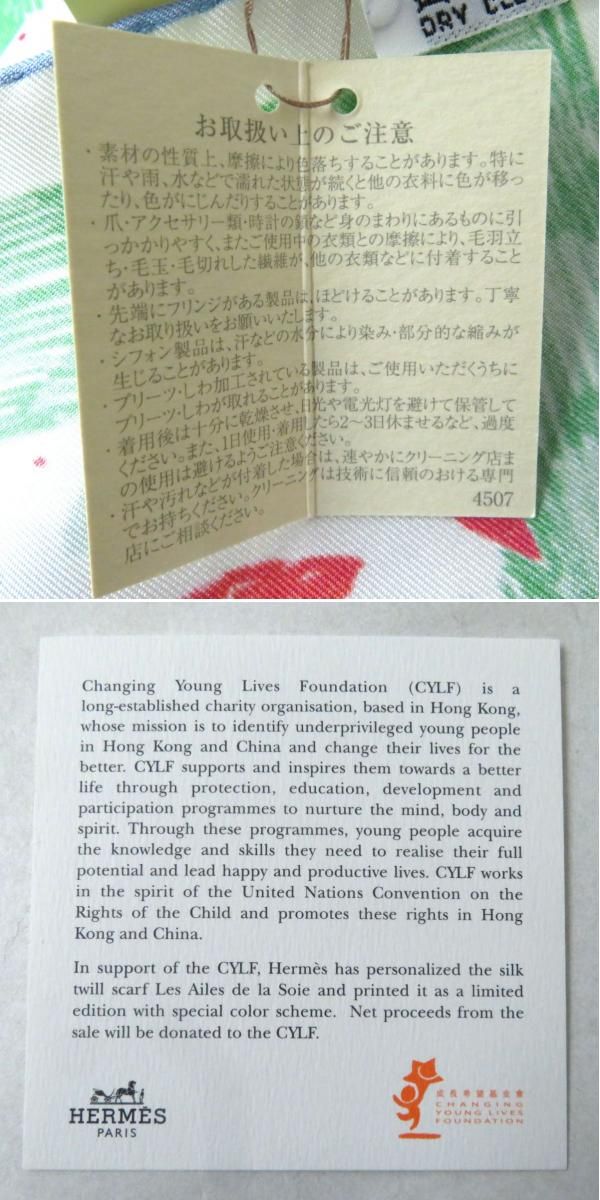 DRY CLE
お取扱い上のご注意
・素材の性質上、摩擦により色落ちすることがあります。特に
汗や雨、水などで濡れた状態が続くと他の衣料に色が移っ
たり、色がにじんだりすることがあります。
・爪・アクセサリー類・時計の鎖など身のまわりにあるものに引
っかかりやすく、またご使用中の衣類との摩擦により、毛羽立
ち・毛玉・毛切れした繊維が、他の衣類などに付着すること
があります。
・先端にフリンジがある製品は、ほどけることがあります。丁寧
なお取り扱いをお願いいたします。
・シフォン製品は、汗などの水分により染み・部分的な縮みが
生じることがあります。
・プリーツ・しわ加工されている製品は、ご使用いただくうちに
プリーツ・しわが取れることがあります。
・着用後は十分に乾燥させ、日光や電光灯を避けて保管して
ください。また、1日使用・着用したら2〜3日休ませるなど、過度
の使用は避けるようご注意ください。
・汗や汚れなどが付着した場合は、速やかにクリーニング店ま
でお持ちください。クリーニングは技術に信頼のおける専門
店にご相談ください。
4507
Changing Young Lives Foundation (CYLF) is a
long-established charity organisation, based in Hong Kong,
whose mission is to identify underprivileged young people
in Hong Kong and China and change their lives for the
better. CYLF supports and inspires them towards a better
life through protection, education, development and
participation programmes to nurture the mind, body and
spirit. Through these programmes, young people acquire
the knowledge and skills they need to realise their full
potential and lead happy and productive lives. CYLF works
in the spirit of the United Nations Convention on the
Rights of the Child and promotes these rights in Hong
Kong and China.
In support of the CYLF, Hermès has personalized the silk
twill scarf Les Ailes de la Soie and printed it as a limited
edition with special color scheme. Net proceeds from the
sale will be donated to the CYLF.
HERMÈS
PARIS
成長希望基金會
CHANGING
YOUNG LIVES
FOUNDATION